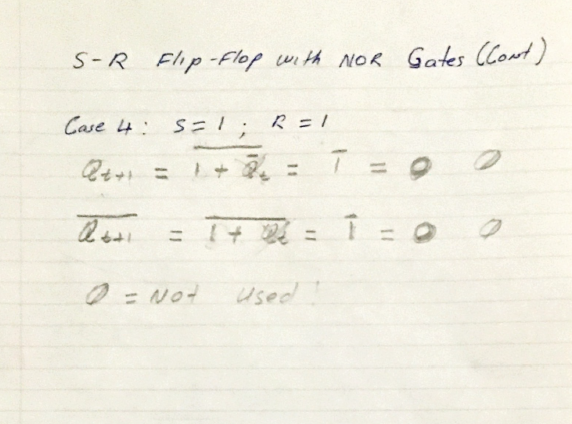 S-R Flip-Flop with NOR Gates (Cont)
Case 4: S=1; R=1
Q̅ₜ₊₁ = 1 + Q̅ₜ = 1̅ = 0 0
Q̅ₜ₊₁ = 1 + Qₜ = 1̅ = 0 0
0 = Not used!